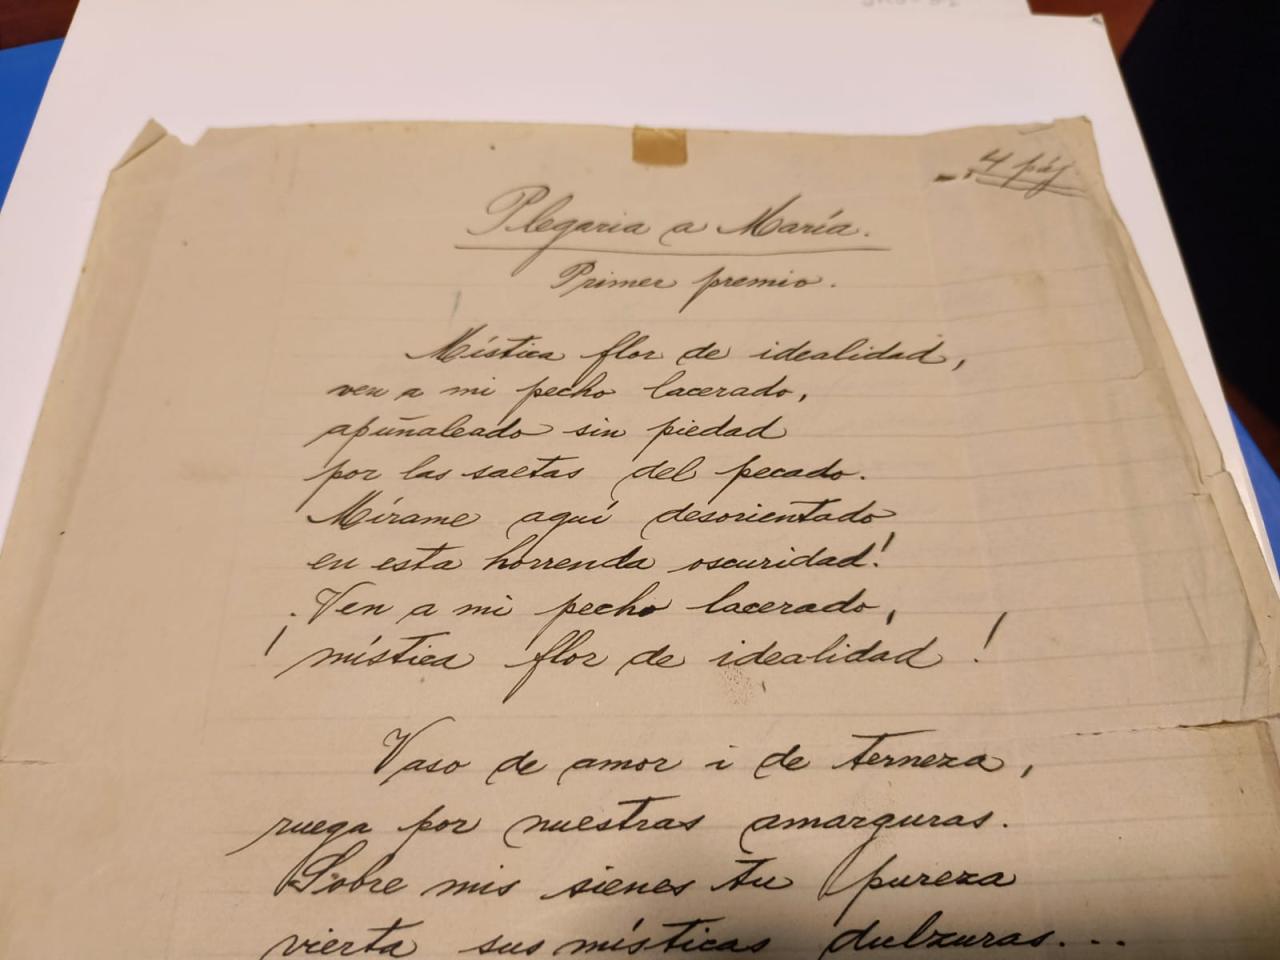 4 páj
Plegaria a María.
Primer premio.
Mística flor de idealidad,
ven a mi pecho lacerado,
apuñaleado sin piedad
por las saetas del pecado.
Mírame aquí desorientado
en esta horrenda oscuridad!
¡Ven a mi pecho lacerado,
¡mística flor de idealidad!
Vaso de amor i de terneza,
ruega por nuestras amarguras.
Sobre mis sienes tu pureza
vierta sus místicas dulzuras...